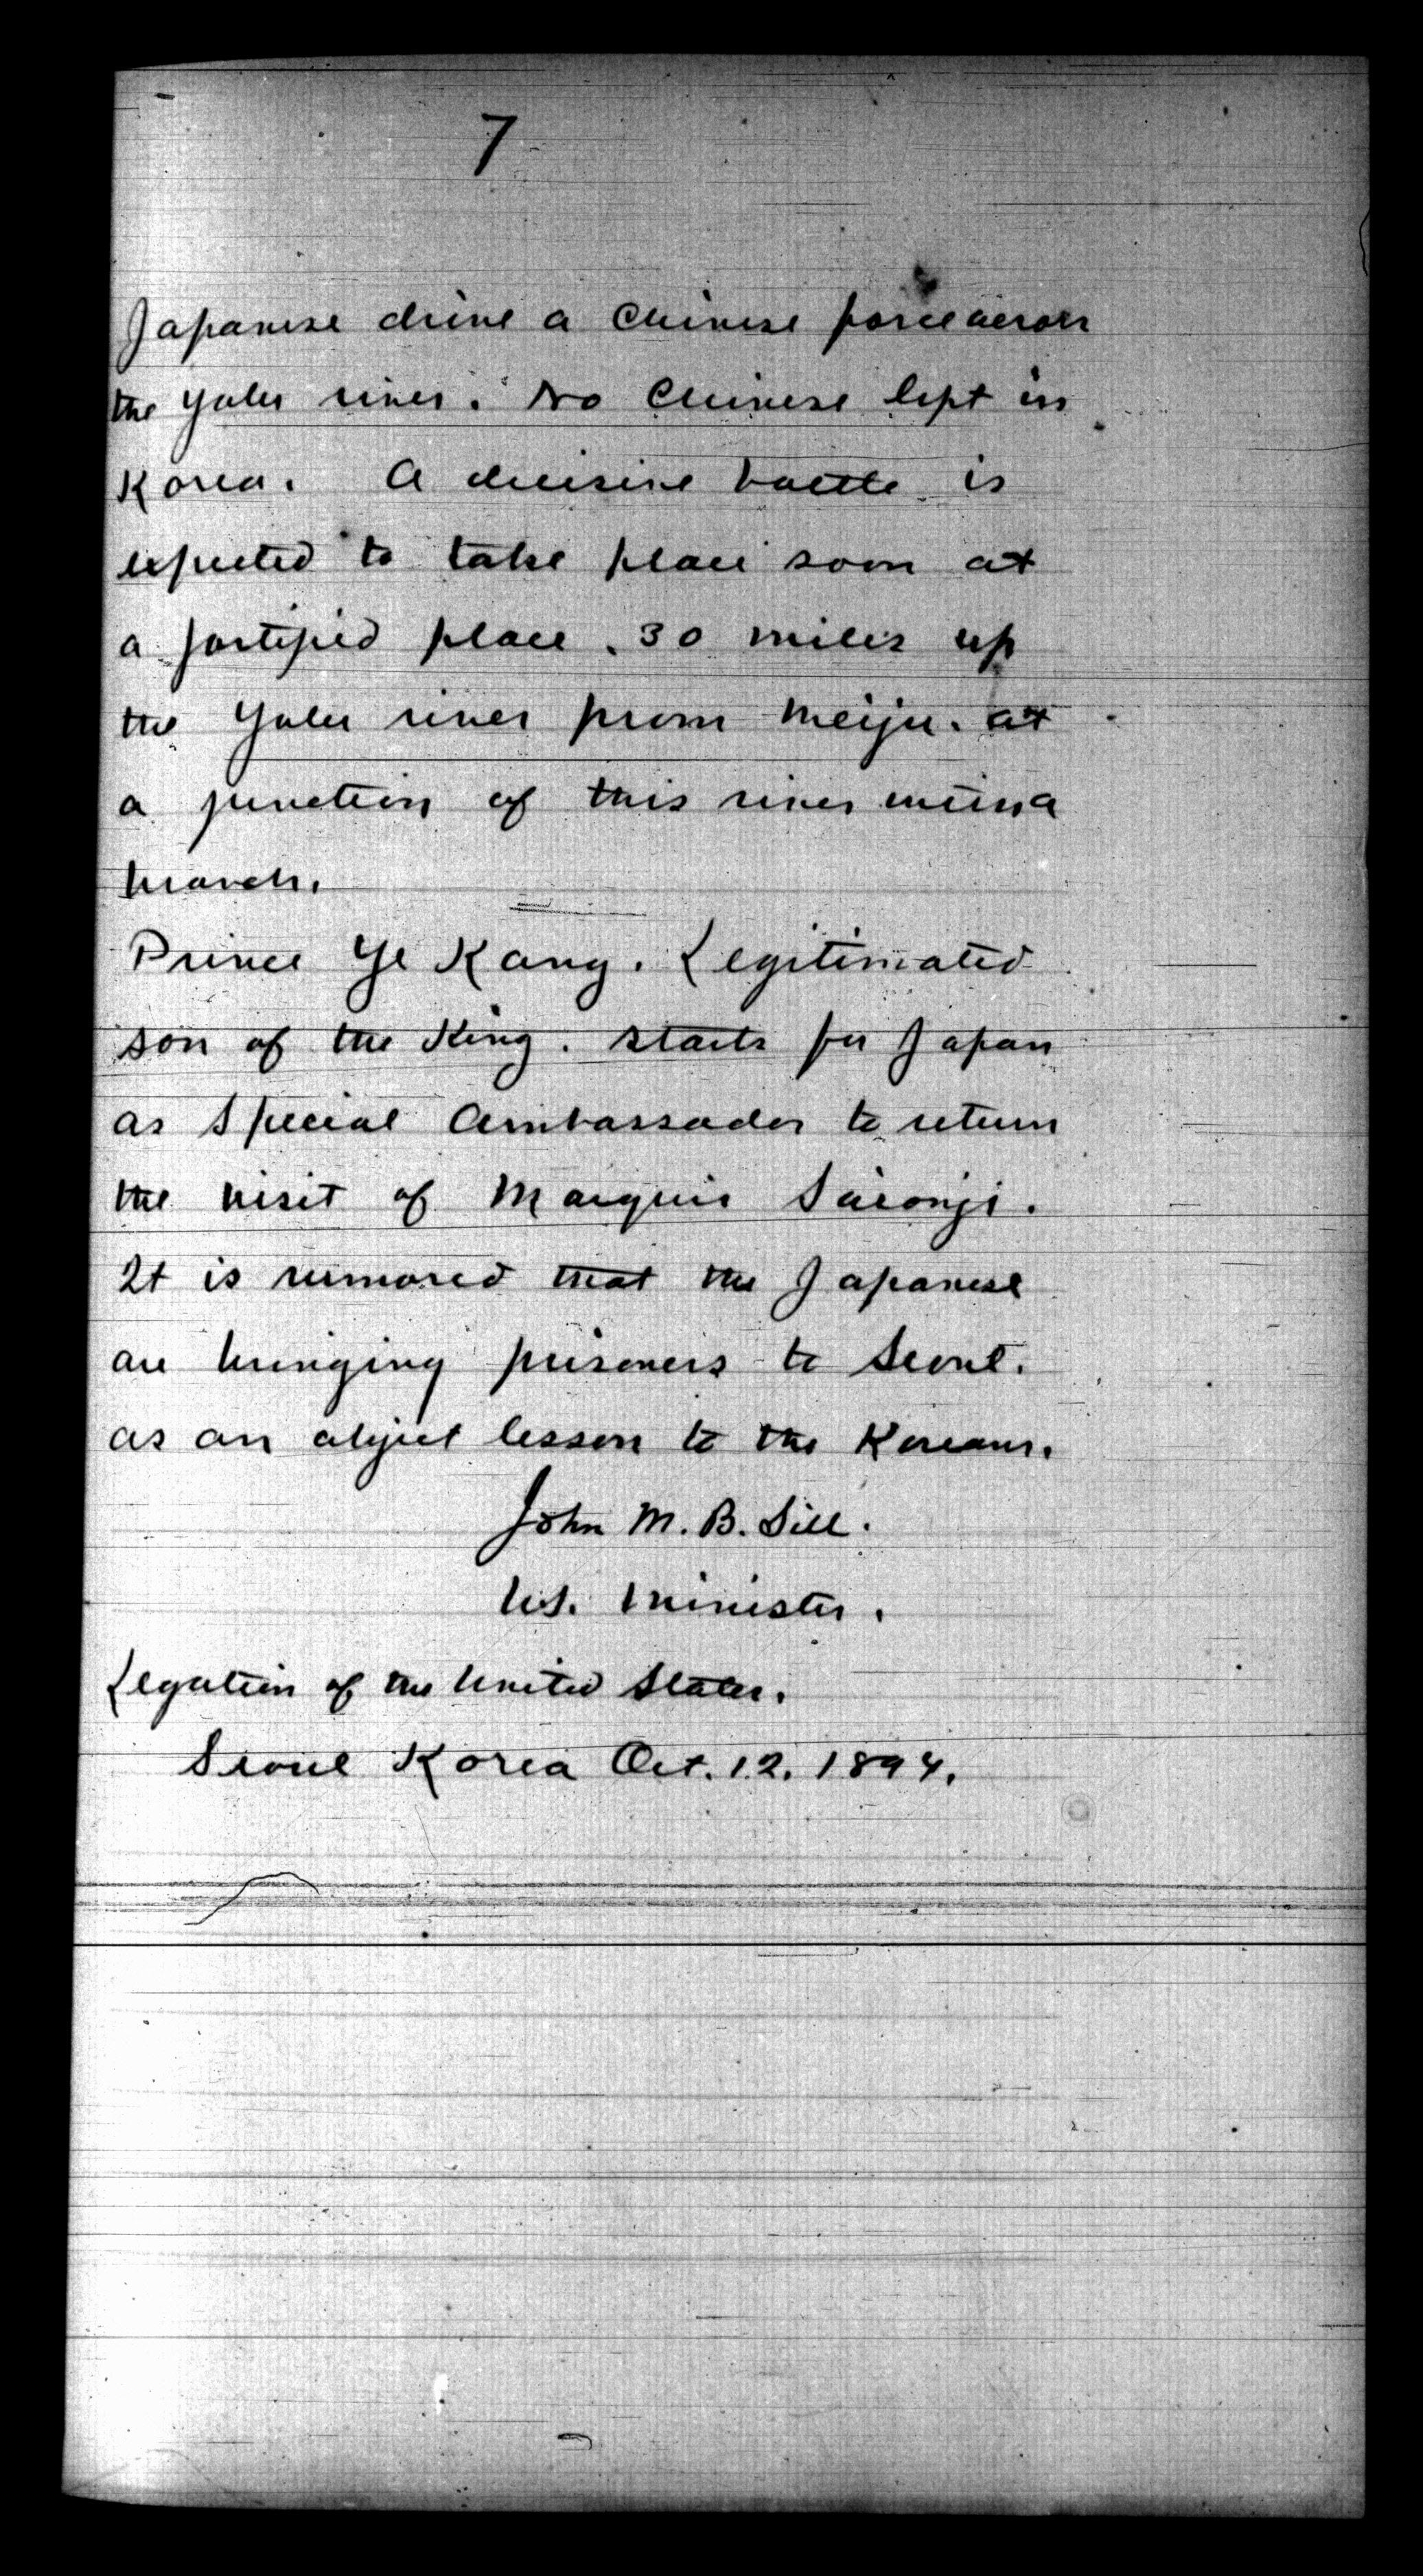 7
Japanese drive a Chinese force across
the Yalu river. No Chinese left in
Korea. A decisive battle is
expected to take place soon at
a fortified place. 30 miles up
the Yalu river from Meiju. at
a junction of this river with a
branch.
Prince Ye Kang. Legitimated
son of the King. starts for Japan
as Special Ambassador to return
the visit of Marquis Saionji.
It is rumored that the Japanese
are bringing prisoners to Seoul.
as an object lesson to the Koreans.
John M. B. Sill.
U.S. Minister.
Legation of the United States.
Seoul Korea Oct. 12. 1894.